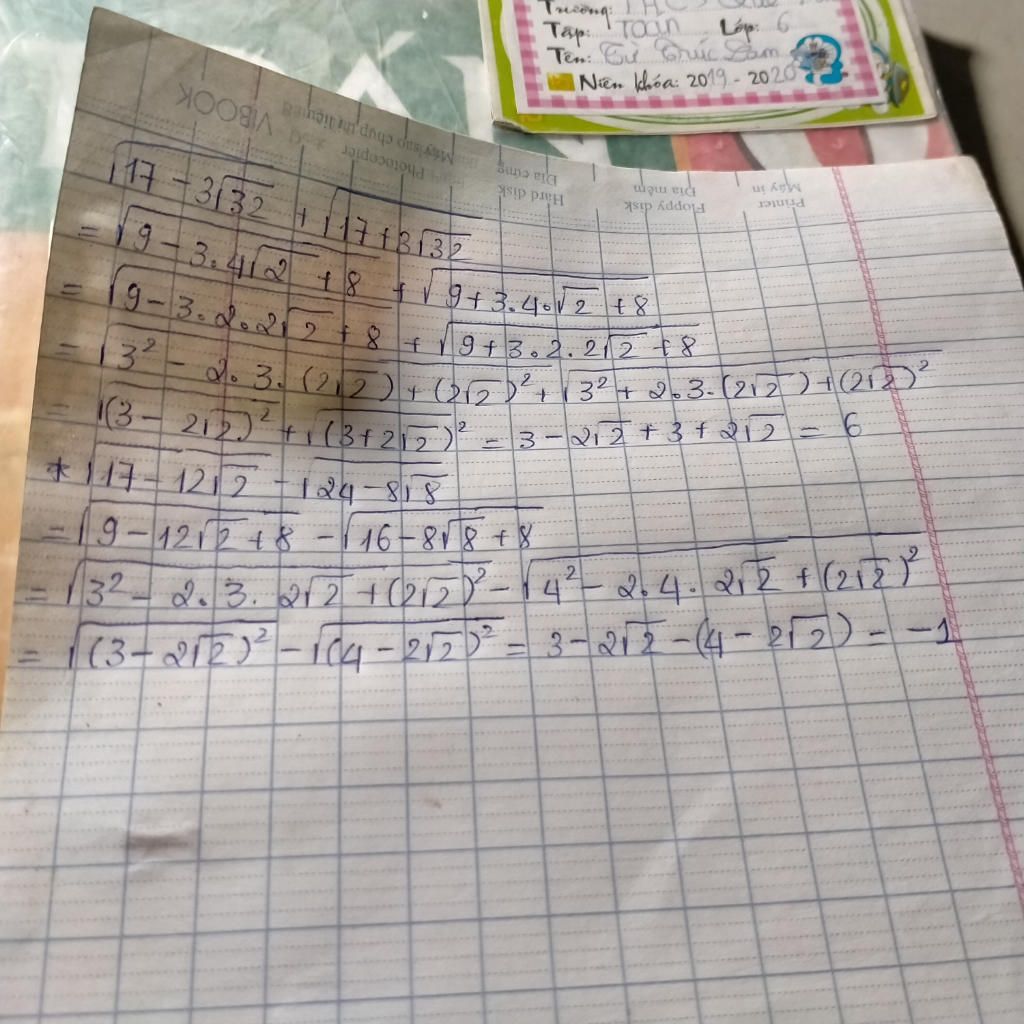 Trường: THCS
Tập: Toán Lớp: 6
Tên: Từ Trúc Lam
Niên khóa: 2019-2020
VIBOOK
Máy sao chụp tài liệu
Photocopier
Đĩa cứng
Hard disk
Đĩa mềm
Floppy disk
Máy in
Printer
√(17 - 3√32) + √(17 + 3√32)
= √(9 - 3.4√2 + 8) + √(9 + 3.4.√2 + 8)
= √(9 - 3.2.2√2 + 8) + √(9 + 3.2.2√2 + 8)
= √(3² - 2.3.(2√2) + (2√2)²) + √(3² + 2.3.(2√2) + (2√2)²)
= √((3 - 2√2)²) + √((3 + 2√2)²) = 3 - 2√2 + 3 + 2√2 = 6
* √(17 - 12√2) - √(24 - 8√8)
= √(9 - 12√2 + 8) - √(16 - 8√8 + 8)
= √(3² - 2.3.2√2 + (2√2)²) - √(4² - 2.4.2√2 + (2√2)²)
= √((3 - 2√2)²) - √((4 - 2√2)²) = 3 - 2√2 - (4 - 2√2) = -1